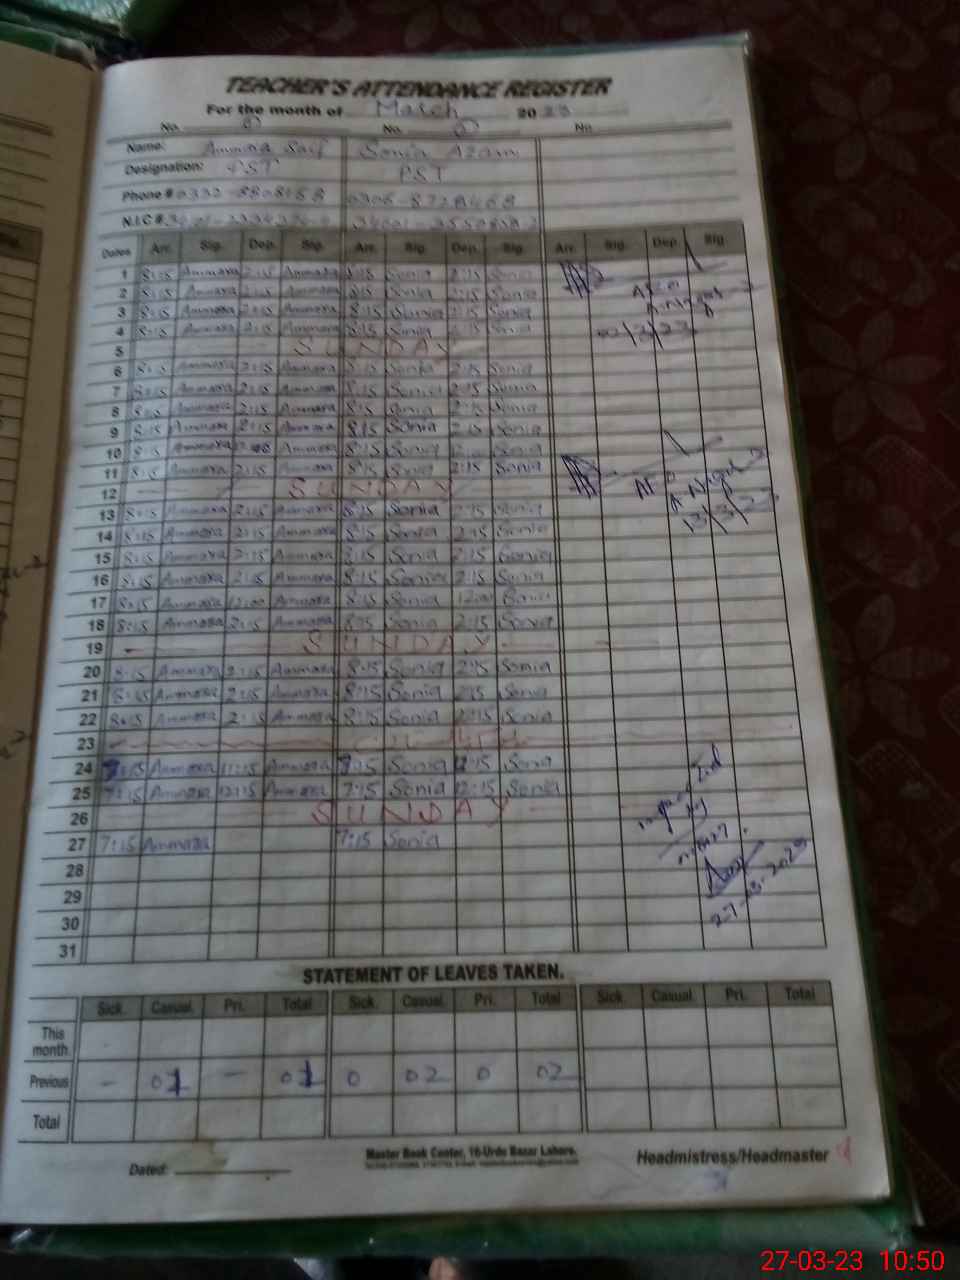 TEACHER'S ATTENDANCE REGISTER
For the month of March 2023
No. No. No.
Name: Ammara Saif Sonia Azam
Designation: PST PST
Phone # 0306-8728468
N.I.C #
Dates Arr. Sig. Dep. Sig. Arr. Sig. Dep. Sig. Arr. Sig. Dep. Sig.
1 8:15 Ammara 2:15 Ammara 8:15 Sonia 2:15 Sonia
2 8:15 Ammara 2:15 Ammara 8:15 Sonia 2:15 Sonia
3 8:15 Ammara 2:15 Ammara 8:15 Sonia 2:15 Sonia
4 8:15 Ammara 2:15 Ammara 8:15 Sonia 2:15 Sonia
5 SUNDAY
6 8:15 Ammara 2:15 Ammara 8:15 Sonia 2:15 Sonia
7 8:15 Ammara 2:15 Ammara 8:15 Sonia 2:15 Sonia
8 8:15 Ammara 2:15 Ammara 8:15 Sonia 2:15 Sonia
9 8:15 Ammara 2:15 Ammara 8:15 Sonia 2:15 Sonia
10 8:15 Ammara Ammara 8:15 Sonia Sonia
11 8:15 Ammara 2:15 Ammara 8:15 Sonia 2:15 Sonia
12 SUNDAY
13 8:15 Ammara 2:15 Ammara 8:15 Sonia 2:15 Sonia
13/3/23
14 8:15 Ammara 2:15 Ammara 8:15 Sonia 2:15 Sonia
15 8:15 Ammara 2:15 Ammara 8:15 Sonia 2:15 Sonia
16 8:15 Ammara 2:15 Ammara 8:15 Sonia 2:15 Sonia
17 8:15 Ammara 12:00 Ammara 8:15 Sonia 12:00 Sonia
18 8:15 Ammara 2:15 Ammara 8:15 Sonia 2:15 Sonia
19 SUNDAY
20 8:15 Ammara 2:15 Ammara 8:15 Sonia 2:15 Sonia
21 8:15 Ammara 2:15 Ammara 8:15 Sonia 2:15 Sonia
22 8:15 Ammara 2:15 Ammara 8:15 Sonia 2:15 Sonia
23
24 7:15 Ammara Ammara 7:15 Sonia 12:15 Sonia
25 7:15 Ammara 12:15 Ammara 7:15 Sonia 12:15 Sonia
26 SUNDAY
27 7:15 Ammara 7:15 Sonia
28
29
27-03-2023
30
31
STATEMENT OF LEAVES TAKEN.
Sick. Casual. Pri. Total Sick. Casual. Pri. Total Sick. Casual. Pri. Total
This month
Previous - 01 - 01 0 02 0 02
Total
Dated:
Master Book Center, 16-Urdu Bazar Lahore.
Headmistress/Headmaster
27-03-23 10:50